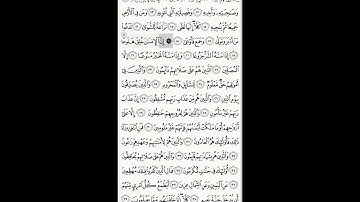 وَصَٰحِبَتِهِۦ وَأَخِيهِ ١٢ وَفَصِيلَتِهِ ٱلَّتِى تُـْٔوِيهِ ١٣ وَمَن فِى ٱلْأَرْضِ
جَمِيعًا ثُمَّ يُنجِيهِ ١٤ كَلَّآ إِنَّهَا لَظَىٰ ١٥ نَزَّاعَةً لِّلشَّوَىٰ ١٦ تَدْعُوا۟
مَنْ أَدْبَرَ وَتَوَلَّىٰ ١٧ وَجَمَعَ فَأَوْعَىٰٓ ١٨ إِنَّ ٱلْإِنسَٰنَ خُلِقَ هَلُوعًا
إِذَا مَسَّهُ ٱلشَّرُّ جَزُوعًا ٢٠ وَإِذَا مَسَّهُ ٱلْخَيْرُ مَنُوعًا ٢١ إِلَّا
ٱلْمُصَلِّينَ ٢٢ ٱلَّذِينَ هُمْ عَلَىٰ صَلَاتِهِمْ دَآئِمُونَ ٢٣ وَٱلَّذِينَ فِىٓ
أَمْوَٰلِهِمْ حَقٌّ مَّعْلُومٌ ٢٤ لِّلسَّآئِلِ وَٱلْمَحْرُومِ ٢٥ وَٱلَّذِينَ يُصَدِّقُونَ
بِيَوْمِ ٱلدِّينِ ٢٦ وَٱلَّذِينَ هُم مِّنْ عَذَابِ رَبِّهِم مُّشْفِقُونَ ٢٧ إِنَّ عَذَابَ
رَبِّهِمْ غَيْرُ مَأْمُونٍ ٢٨ وَٱلَّذِينَ هُمْ لِفُرُوجِهِمْ حَٰفِظُونَ ٢٩ إِلَّا عَلَىٰٓ
أَزْوَٰجِهِمْ أَوْ مَا مَلَكَتْ أَيْمَٰنُهُمْ فَإِنَّهُمْ غَيْرُ مَلُومِينَ ٣٠ فَمَنِ ٱبْتَغَىٰ وَرَآءَ
ذَٰلِكَ فَأُو۟لَٰٓئِكَ هُمُ ٱلْعَادُونَ ٣١ وَٱلَّذِينَ هُمْ لِأَمَٰنَٰتِهِمْ وَعَهْدِهِمْ رَٰعُونَ
٣٢ وَٱلَّذِينَ هُم بِشَهَٰدَٰتِهِمْ قَآئِمُونَ ٣٣ وَٱلَّذِينَ هُمْ عَلَىٰ صَلَاتِهِمْ يُحَافِظُونَ
٣٤ أُو۟لَٰٓئِكَ فِى جَنَّٰتٍ مُّكْرَمُونَ ٣٥ فَمَالِ ٱلَّذِينَ كَفَرُوا۟ قِبَلَكَ مُهْطِعِينَ
٣٦ عَنِ ٱلْيَمِينِ وَعَنِ ٱلشِّمَالِ عِزِينَ ٣٧ أَيَطْمَعُ كُلُّ ٱمْرِئٍ مِّنْهُمْ
أَن يُدْخَلَ جَنَّةَ نَعِيمٍ ٣٨ كَلَّآ إِنَّا خَلَقْنَٰهُم مِّمَّا يَعْلَمُونَ ٣٩